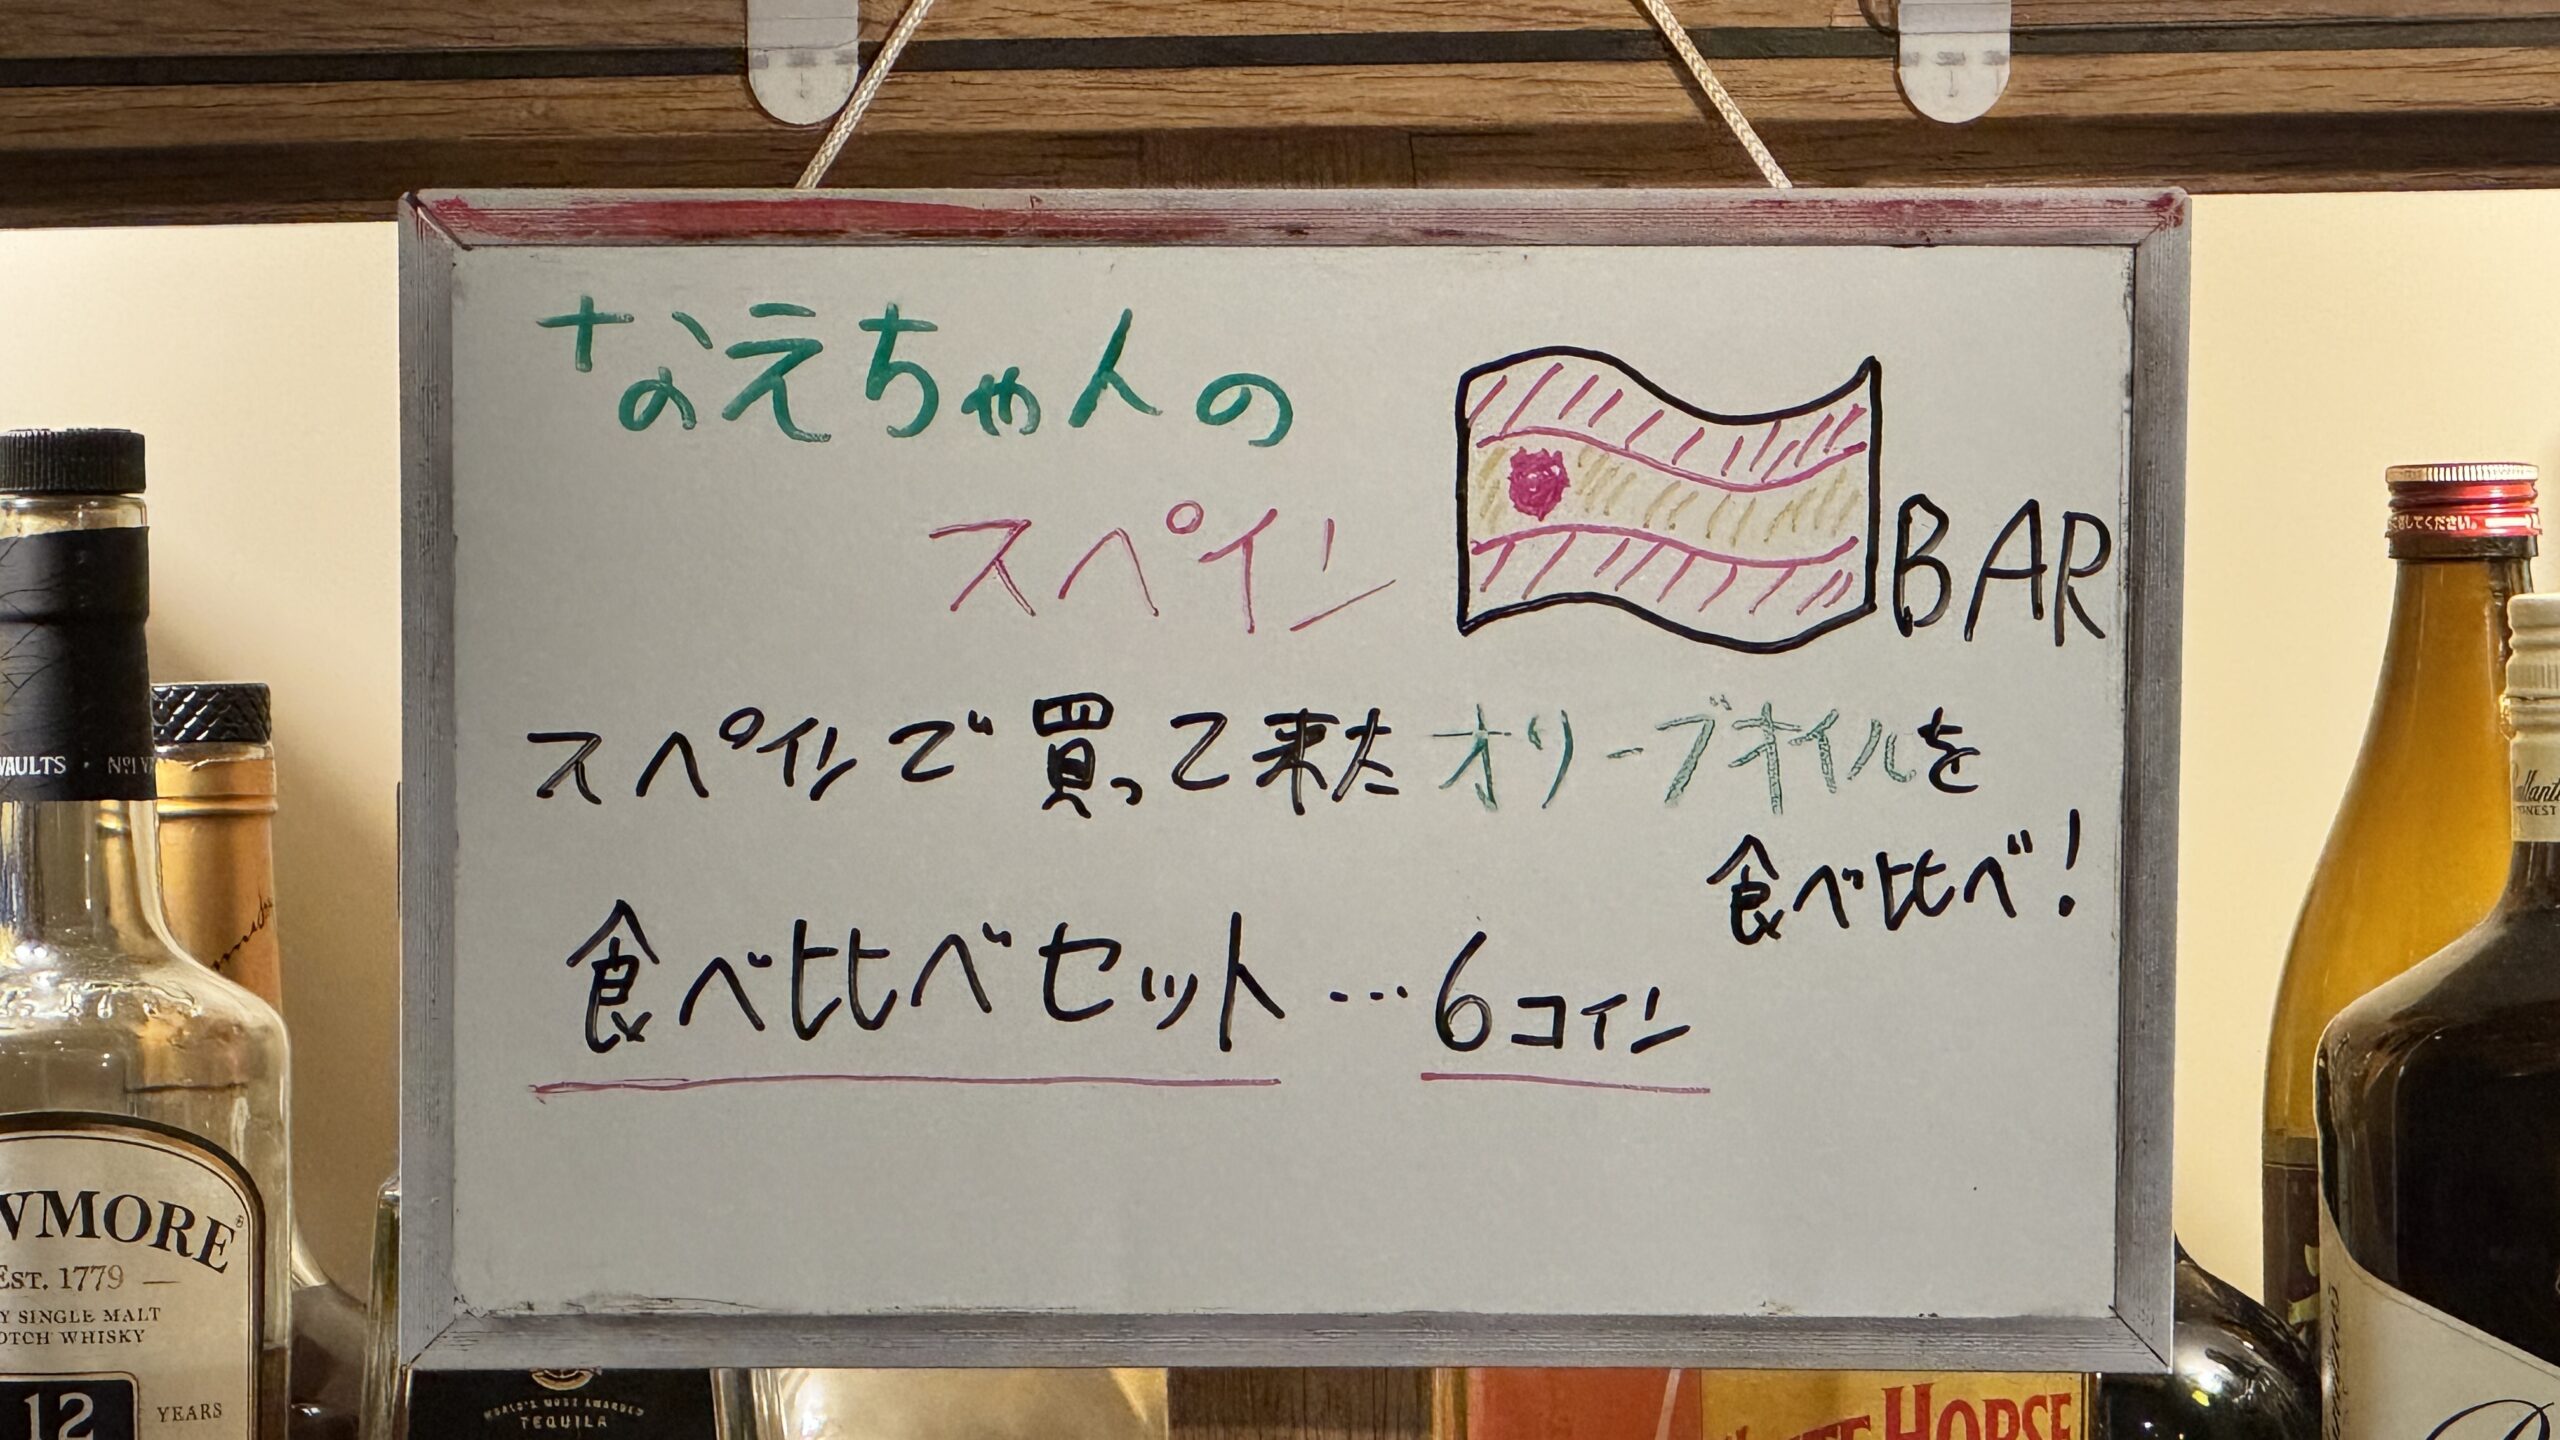 なえちゃんの
スペイン BAR
スペインで買って来たオリーブオイルを
食べ比べ!
食べ比べセット…6コイン
VAULTS · No.1
WMORE
EST. 1779
Y SINGLE MALT
OTCH WHISKY
12 YEARS
WORLD'S MOST AWARDED
TEQUILA
HORSE